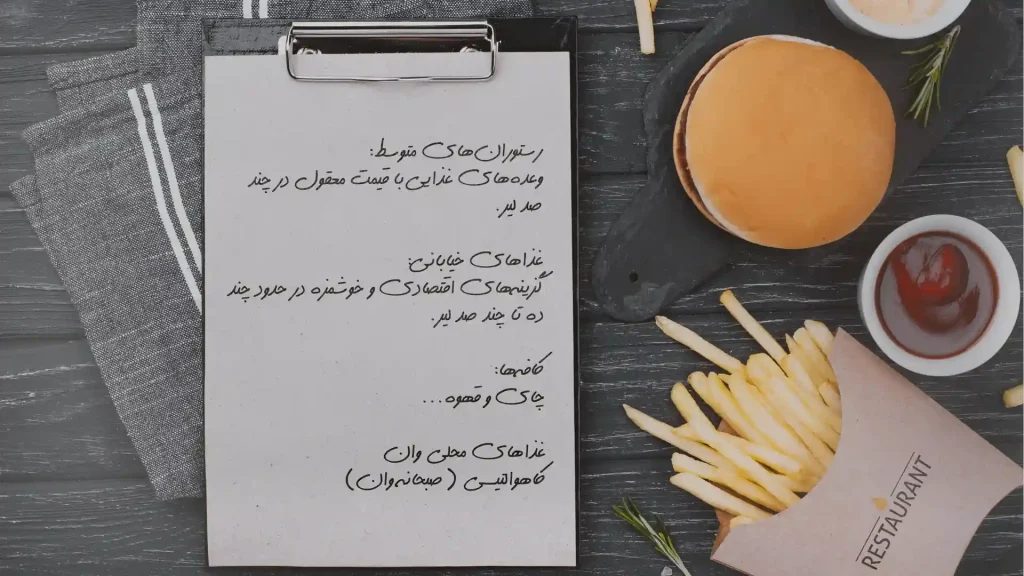 رستوران‌های متوسط:
وعده‌های غذایی با قیمت معقول در چند
صد لیر.
غذاهای خیابانی:
گزینه‌های اقتصادی و خوشمزه در حدود چند
ده تا چند صد لیر.
کافه‌ها:
چای و قهوه...
غذاهای محلی وان
کاهوالتیسی (صبحانه‌وان)
RESTAURANT